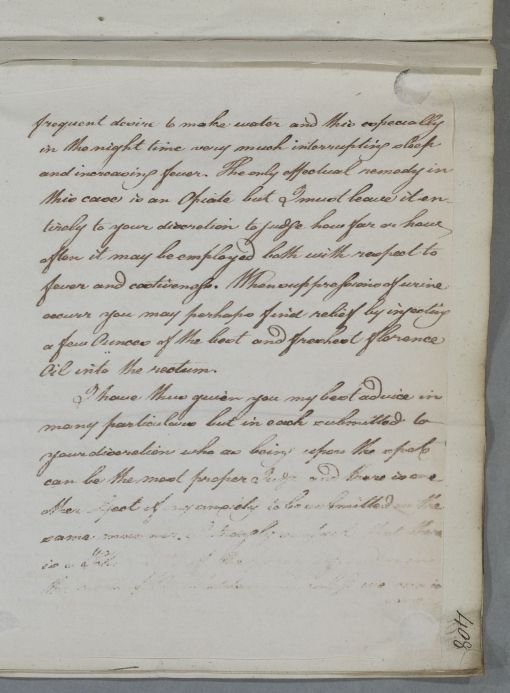 frequent desire to make water and this especially
in the night time very much interrupting sleep
and increasing fever. The only effectual remedy in
this case is an Opiate but I must leave it en-
tirely to your discretion to judge how far or how
often it may be employed both with respect to
fever and costiveness. When suppressions of urine
occurr you may perhaps find relief by injecting
a few Ounces of the best and freshest florence
Oil into the rectum.
I have thus given you my best advice in
many particulars but in each submitted to
your discretion who as being upon the spot
can be the most proper Judge and there is ano-
ther object of my anxiety to be submitted in the
same manner. I that there
is a
the
408